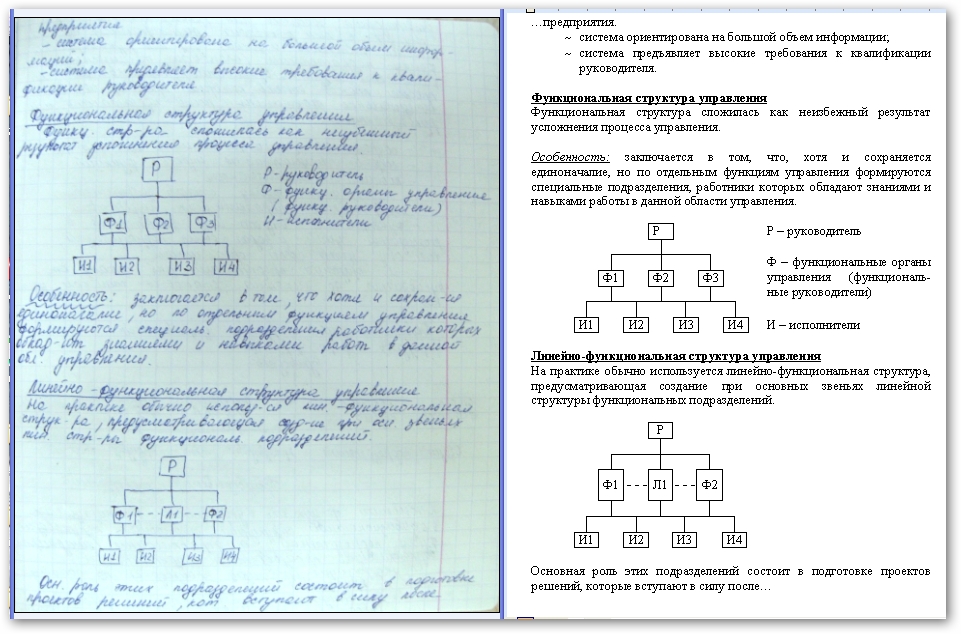 предприятия.
- система ориентирована на большой объем инфор-
мации;
- система предъявляет высокие требования к квали-
фикации руководителя
Функциональная структура управления
Функц. стр-ра сложилась как неизбежный
результат усложнения процесса управления.
Р
Р - руководитель
Ф - функц. органы управления
(функц. руководители)
И - исполнители
Ф1 Ф2 Ф3
И1 И2 И3 И4
Особенность: заключается в том, что хотя и сохран-ся
единоначалие, но по отдельным функциям управления
формируются специальн. подразделения работники которых
облад-ют знаниями и навыками работ в данной
обл. управления.
Линейно-функциональная структура управления
На практике обычно использ-ся лин.-функциональная
струк-ра, предусматривающая созд-ие при осн. звеньях
лин. стр-ры функциональн. подразделений.
Р
Ф1 - - - Л1 - - Ф2
И1 И2 И3 И4
Осн роль этих подразделений состоит в подготовке
проектов решений, кот. вступают в силу после
…предприятия.
~ система ориентирована на большой объем информации;
~ система предъявляет высокие требования к квалификации
руководителя.
Функциональная структура управления
Функциональная структура сложилась как неизбежный результат
усложнения процесса управления.
Особенность: заключается в том, что, хотя и сохраняется
единоначалие, но по отдельным функциям управления формируются
специальные подразделения, работники которых обладают знаниями и
навыками работы в данной области управления.
Р
Р – руководитель
Ф – функциональные органы
управления (функциональ-
ные руководители)
Ф1 Ф2 Ф3
И1 И2 И3 И4
И – исполнители
Линейно-функциональная структура управления
На практике обычно используется линейно-функциональная структура,
предусматривающая создание при основных звеньях линейной
структуры функциональных подразделений.
Р
Ф1 - - - Л1 - - - Ф2
И1 И2 И3 И4
Основная роль этих подразделений состоит в подготовке проектов
решений, которые вступают в силу после…